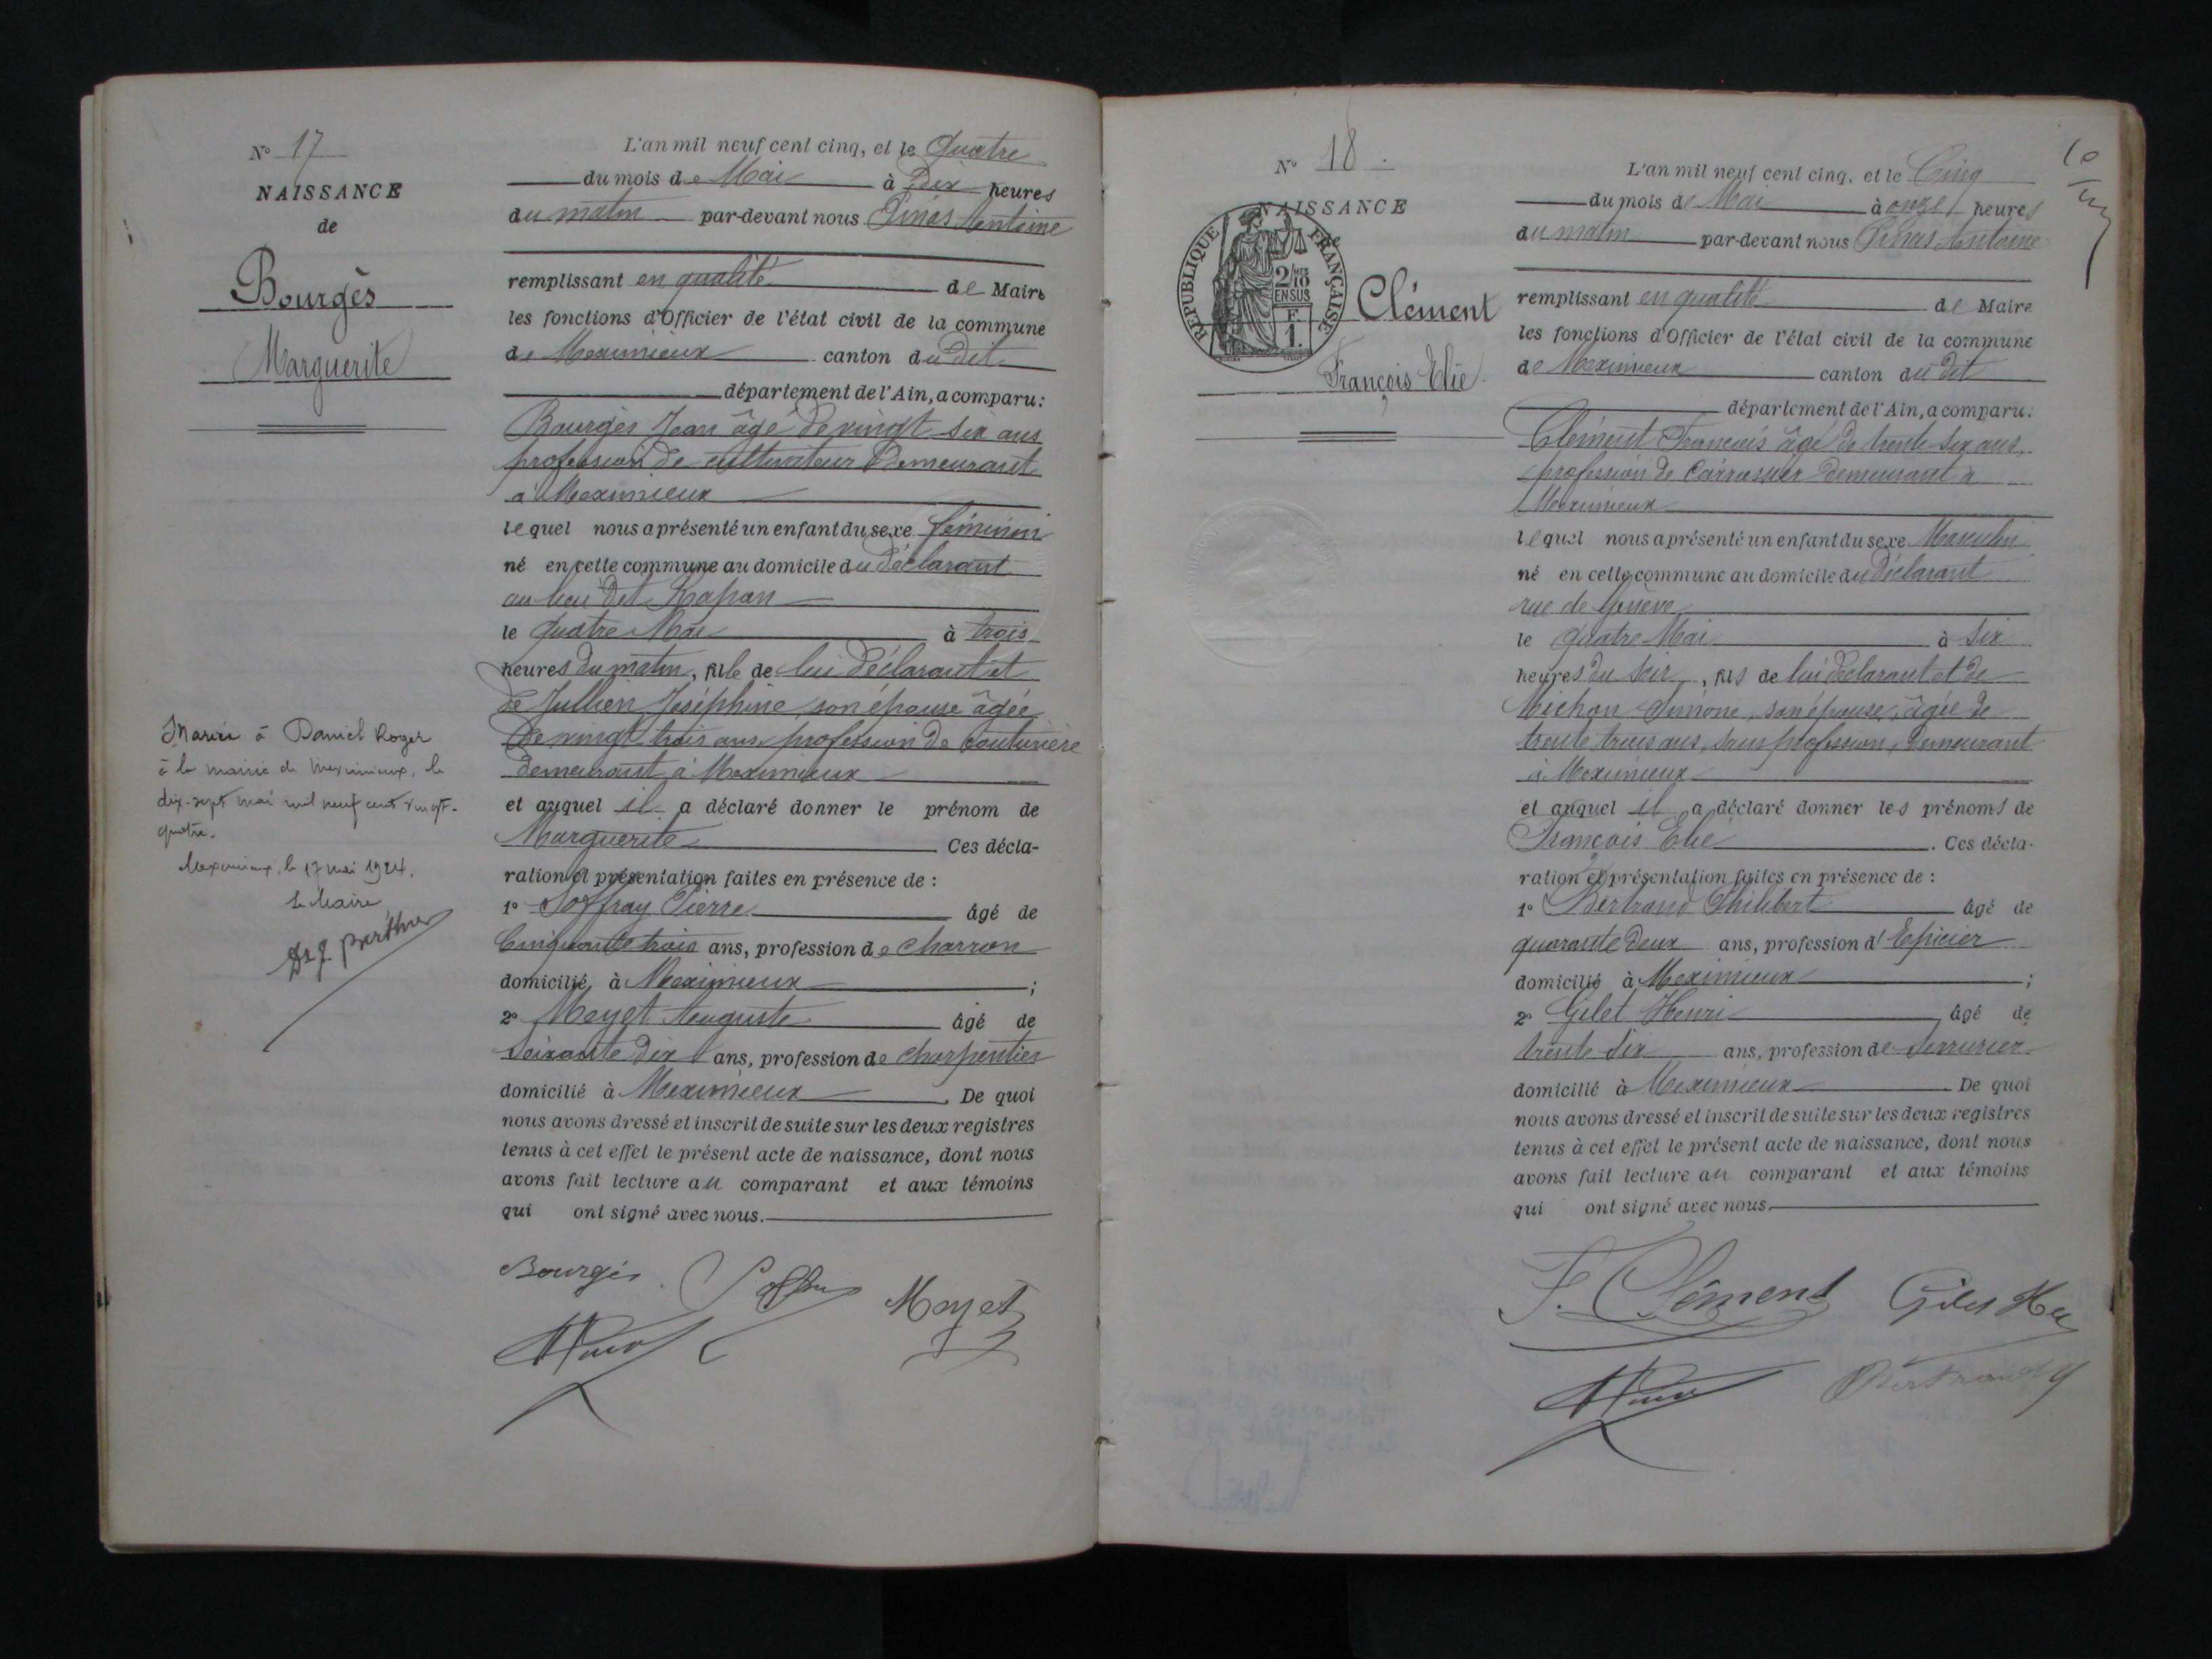 N° 17
NAISSANCE
de
Bourgès
Marguerite
L'an mil neuf cent cinq, et le Quatre
du mois de Mai à Dix heures
du matin par-devant nous Pinas Antoine
remplissant en qualité de Maire
les fonctions d'Officier de l'état civil de la commune
de Meximieux canton du dit
département de l'Ain, a comparu:
Bourgès Jean âgé de vingt six ans
profession de cultivateur demeurant
à Meximieux
lequel nous a présenté un enfant du sexe féminin
né en cette commune au domicile du déclarant
au lieu dit
le quatre Mai à trois
heures du matin, fille de lui déclarant et
de Jullien Joséphine son épouse âgée
de vingt trois ans, profession de couturière
demeurant à Meximieux
et auquel il a déclaré donner le prénom de
Marguerite Ces décla-
ration et présentation faites en présence de :
1° Joffray Pierre âgé de
Cinquante trois ans, profession de charron
domicilié à Meximieux ;
2° Moyet Auguste âgé de
soixante dix ans, profession de charpentier
domicilié à Meximieux . De quoi
nous avons dressé et inscrit de suite sur les deux registres
tenus à cet effet le présent acte de naissance, dont nous
avons fait lecture au comparant et aux témoins
qui ont signé avec nous.
Bourgès
Moyet
Mariée à Daniel Roger
à la mairie de Meximieux, le
dix-sept mai mil neuf cent vingt-
quatre.
Meximieux, le 17 mai 1924.
Le Maire
N° 18
NAISSANCE
de
RÉPUBLIQUE FRANÇAISE
2/10 MES
EN SUS
F
1.
Clément
François Elie
L'an mil neuf cent cinq, et le Cinq
du mois de Mai à onze heures
du matin par-devant nous Pinas Antoine
remplissant en qualité de Maire
les fonctions d'Officier de l'état civil de la commune
de Meximieux canton du dit
département de l'Ain, a comparu:
Clément François âgé de trente six ans,
profession de Carrossier demeurant à
Meximieux
lequel nous a présenté un enfant du sexe Masculin
né en cette commune au domicile du déclarant
rue de Genève
le quatre Mai à six
heures du soir, fils de lui déclarant et de
Michon Simone, son épouse, âgée de
trente trois ans, sans profession, demeurant
à Meximieux
et auquel il a déclaré donner les prénoms de
François Elie . Ces décla-
ration et présentation faites en présence de :
1° Bertrand Philibert âgé de
quarante deux ans, profession d'Epicier
domicilié à Meximieux ;
2° Gilet Henri âgé de
trente six ans, profession de Serrurier
domicilié à Meximieux De quoi
nous avons dressé et inscrit de suite sur les deux registres
tenus à cet effet le présent acte de naissance, dont nous
avons fait lecture au comparant et aux témoins
qui ont signé avec nous.
F. Clément
Bertrand